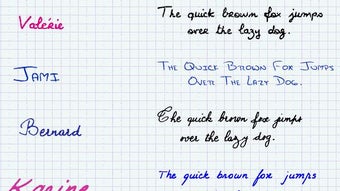 Valérie
The quick brown fox jumps
over the lazy dog.
JAMI
THE QUICK BROWN FOX JUMPS
OVER THE LAZY DOG.
Bernard
The quick brown fox jumps
over the lazy dog.
Karine
The quick brown fox jumps